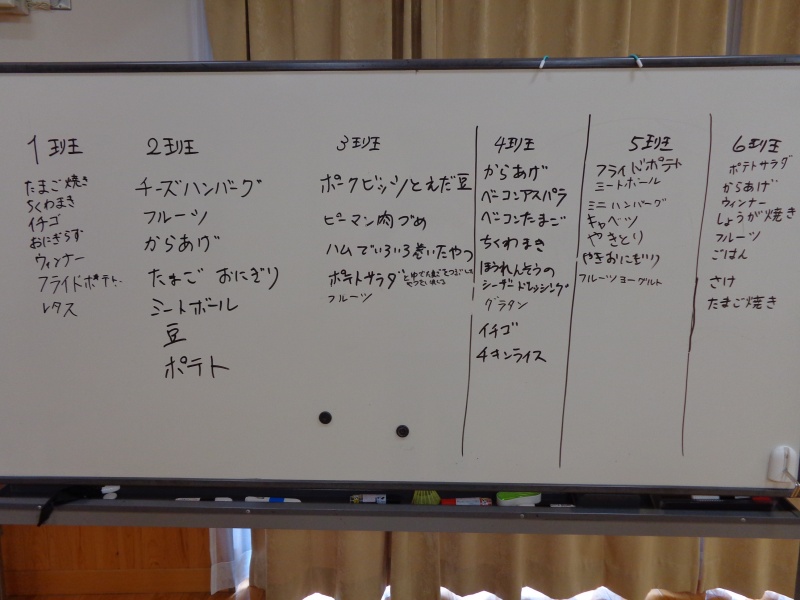 1班
たまご焼き
ちくわまき
イチゴ
おにぎらず
ウィンナー
フライドポテト
レタス
2班
チーズハンバーグ
フルーツ
からあげ
たまご おにぎり
ミートボール
豆
ポテト
3班
ポークビッツとえだ豆
ピーマン肉づめ
ハムでいろいろ巻いたやつ
ポテトサラダ
フルーツ
4班
からあげ
ベーコンアスパラ
ベーコンたまご
ちくわまき
ほうれんそうの
シーザードレッシング
グラタン
イチゴ
チキンライス
5班
フライドポテト
ミートボール
ミニハンバーグ
キャベツ
やきとり
やきおにぎり
フルーツヨーグルト
6班
ポテトサラダ
からあげ
ウィンナー
しょうが焼き
フルーツ
ごはん
さけ
たまご焼き